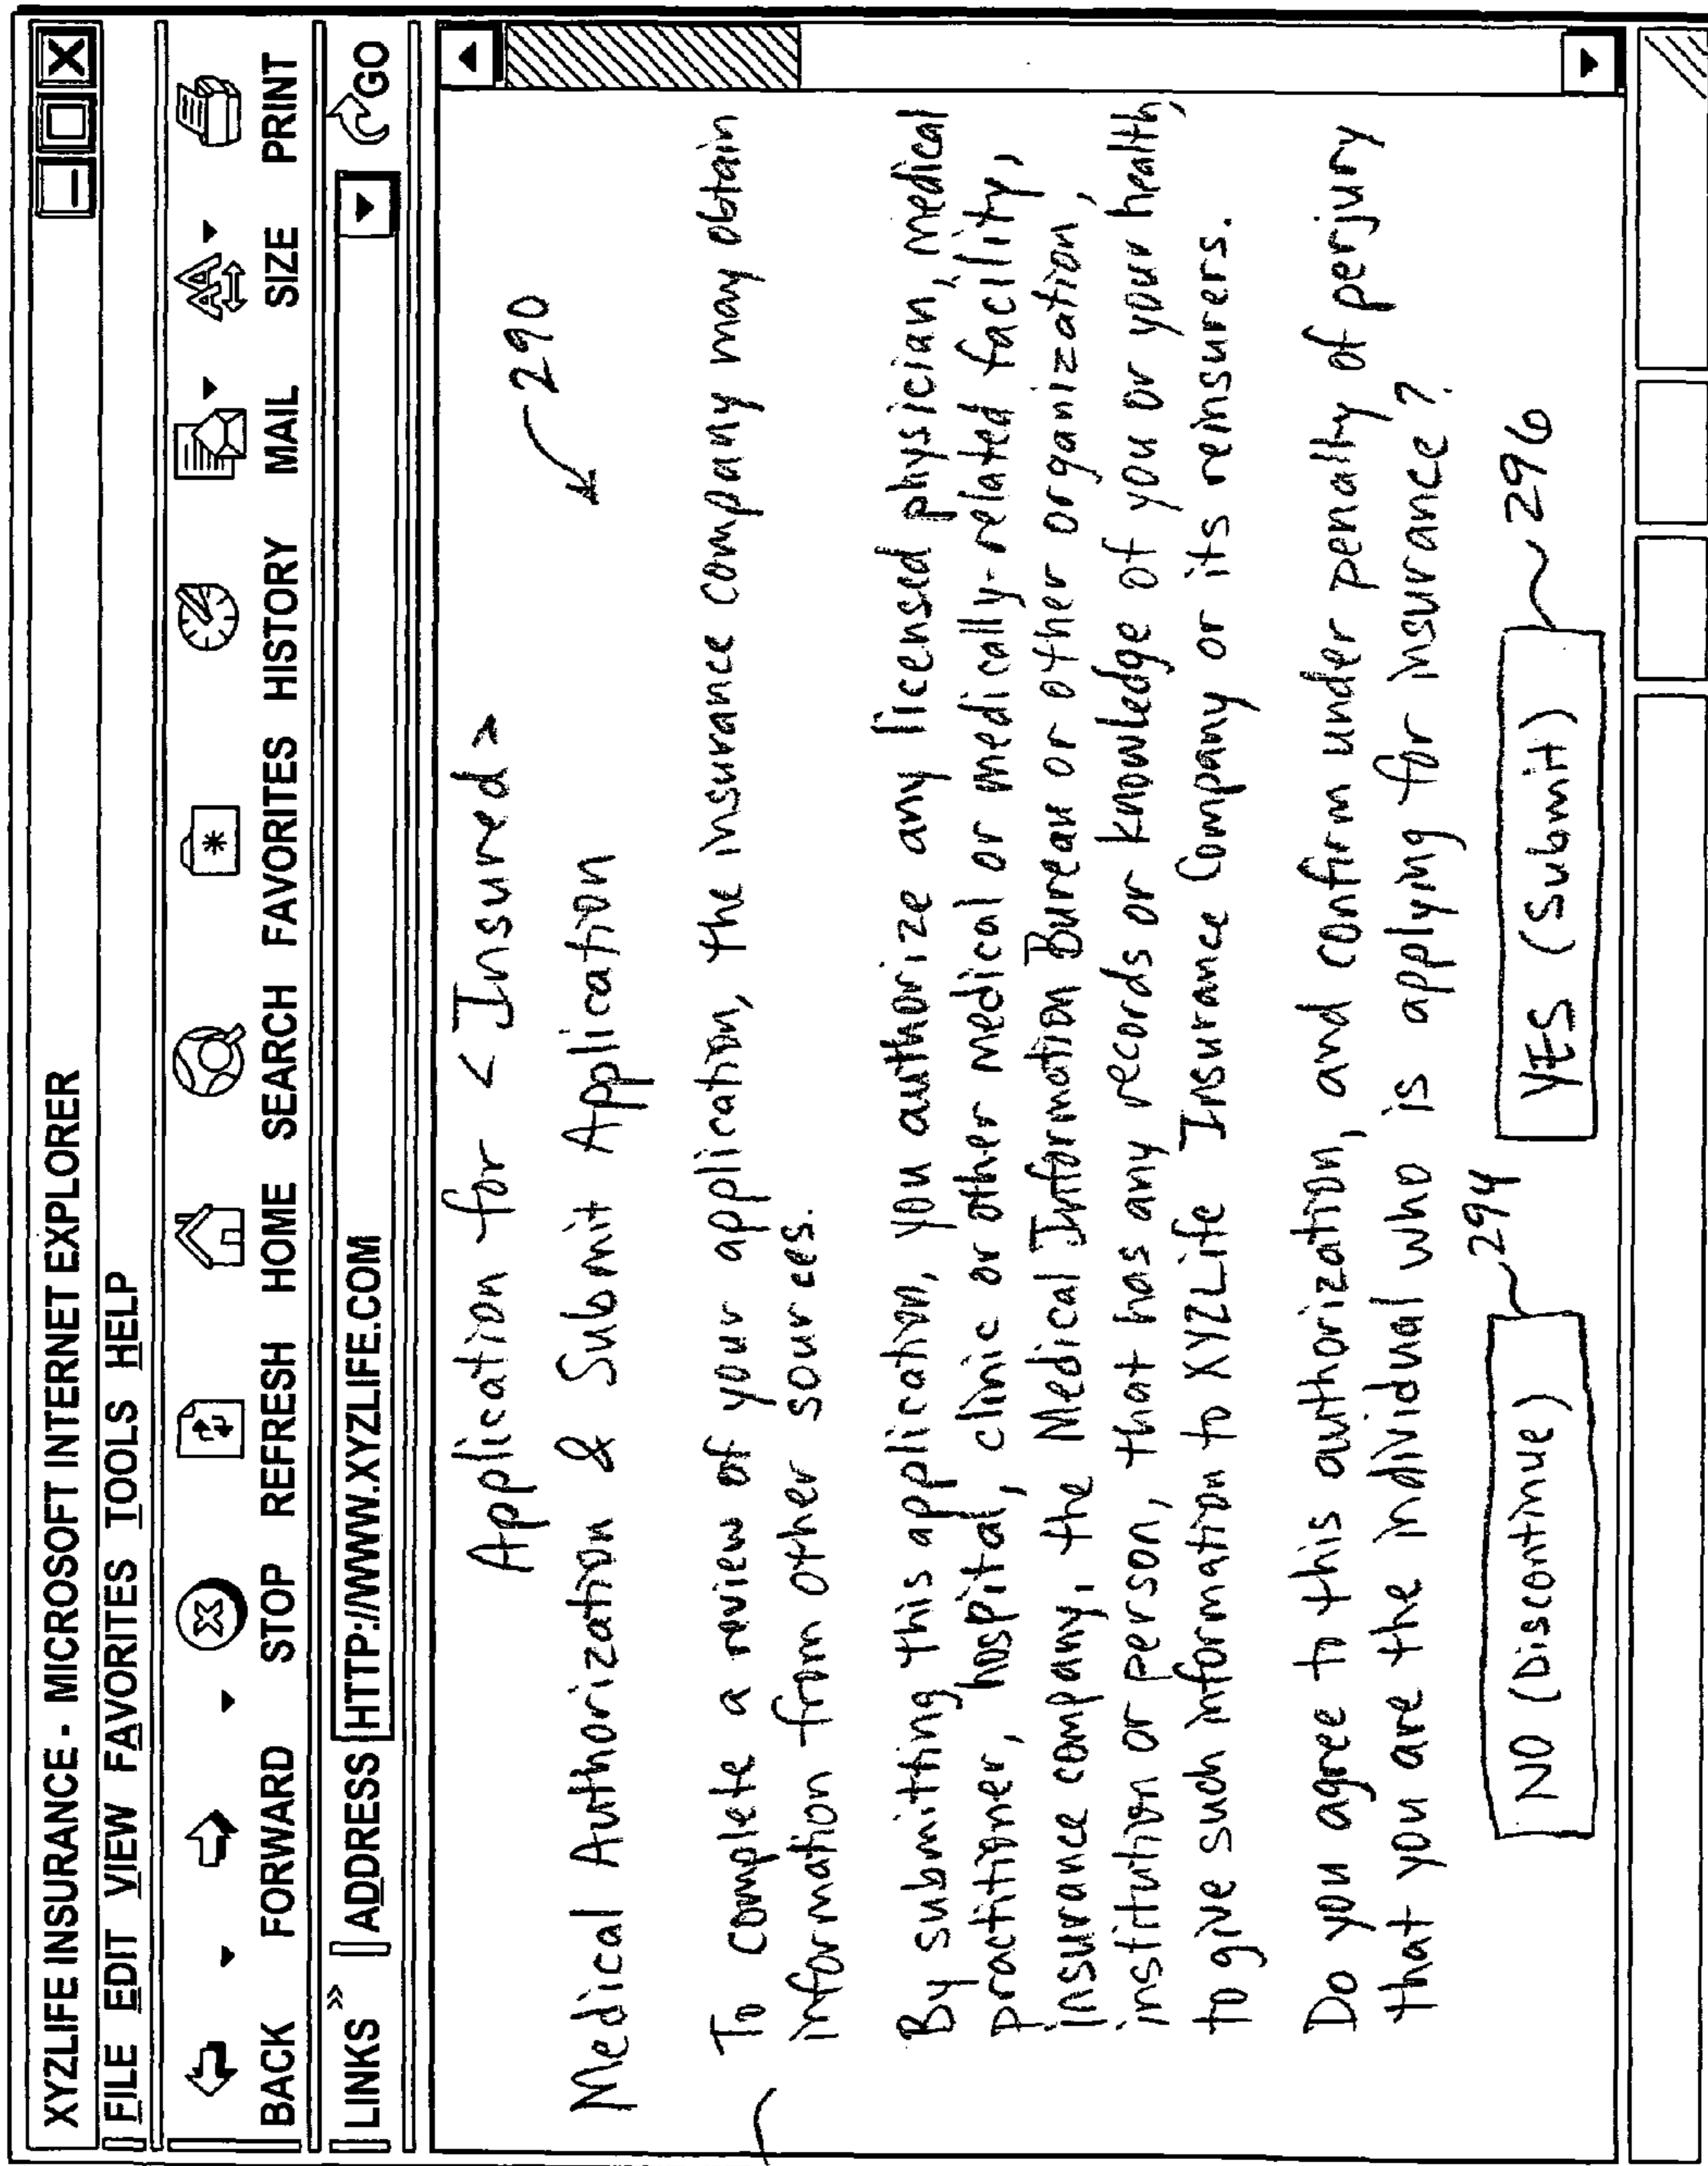 XYZLIFE INSURANCE - MICROSOFT INTERNET EXPLORER
FILE EDIT VIEW FAVORITES TOOLS HELP
BACK FORWARD STOP REFRESH HOME SEARCH FAVORITES HISTORY MAIL SIZE PRINT
LINKS » ADDRESS HTTP://WWW.XYZLIFE.COM GO
Application for < Insured >
290
Medical Authorization & Submit Application
To complete a review of your application, the insurance company may obtain
information from other sources.
By submitting this application, you authorize any licensed physician, medical
practitioner, hospital, clinic or other medical or medically-related facility,
insurance company, the Medical Information Bureau or other organization,
institution or person, that has any records or knowledge of you or your health,
to give such information to XYZLife Insurance Company or its reinsurers.
Do you agree to this authorization, and confirm under penalty of perjury
that you are the individual who is applying for insurance?
NO (Discontinue) 294 YES (Submit) 296